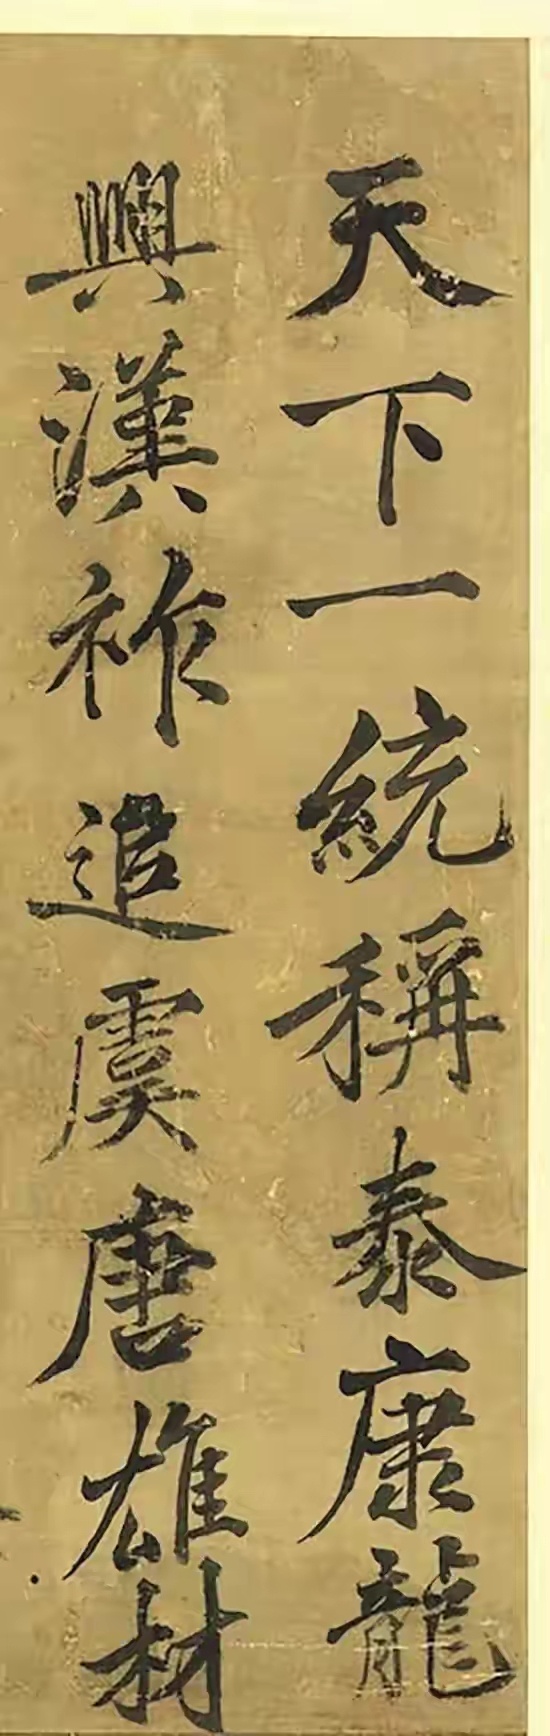 天下一統稱泰康龍
興漢祚追虞唐雄材